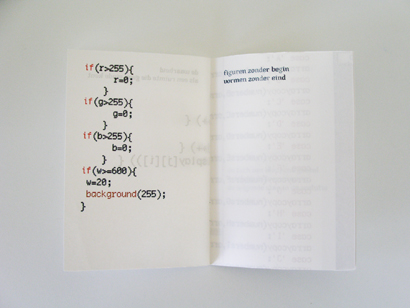 if(r>255){
r=0;
}
if(g>255){
g=0;
}
if(b>255){
b=0;
}
if(w>=600){
w=20;
background(255);
}
figuren zonder begin
vormen zonder eind